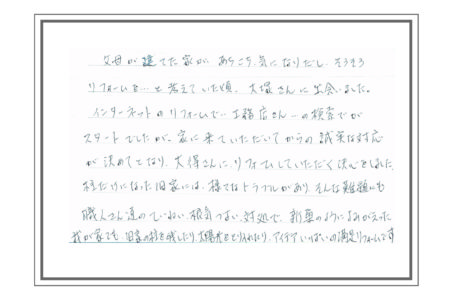 父母が建てた家が、あちこち気になりだし、そろそろ
リフォームを…と考えていた頃、大塚さんに出会いました。
インターネットのリフォームで…工務店さん…の検索でが
スタートでしたが、家に来ていただいてからの誠実な対応
が決めてとなり、大塚さんにリフォームしていただく決心をしました。
柱だけになった旧家には、様々なトラブルがあり、そんな難題にも
職人さん達のていねい、根気づよい対処で、新築のようによみがえった
我が家です。旧家の柱を残したり、太陽光をとり入れたり、アイデアいっぱいの満足リフォームです